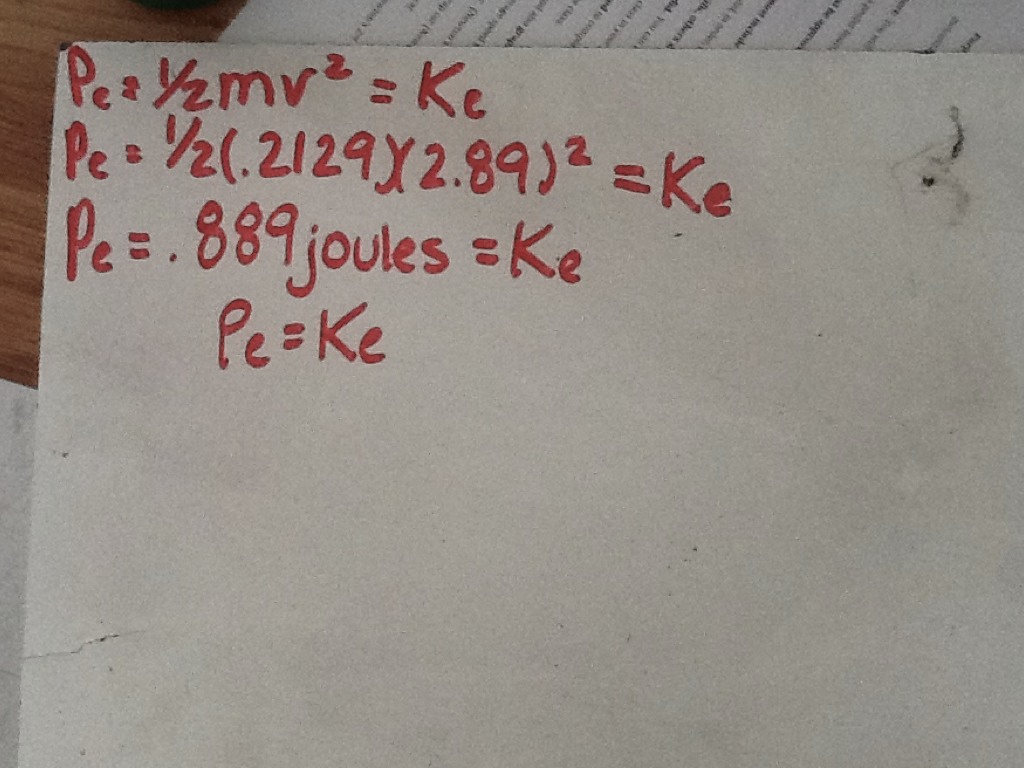 Pe = 1/2mv² = Ke
Pe = 1/2(.2129)(2.89)² = Ke
Pe = .889 joules = Ke
Pe = Ke